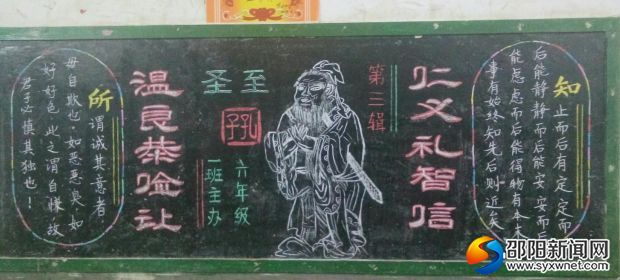 知止而后有定定而
后能静静而后能安安而后
能虑虑而后能得物有本末
事有始终知先后则近矣
仁义礼智信
第三辑
至圣
孔子
六年级
一班主办
温良恭俭让
所谓诚其意者
毋自欺也。如恶恶臭,如
好好色,此之谓自慊,故
君子必慎其独也!
邵阳新闻网
www.syxwnet.com